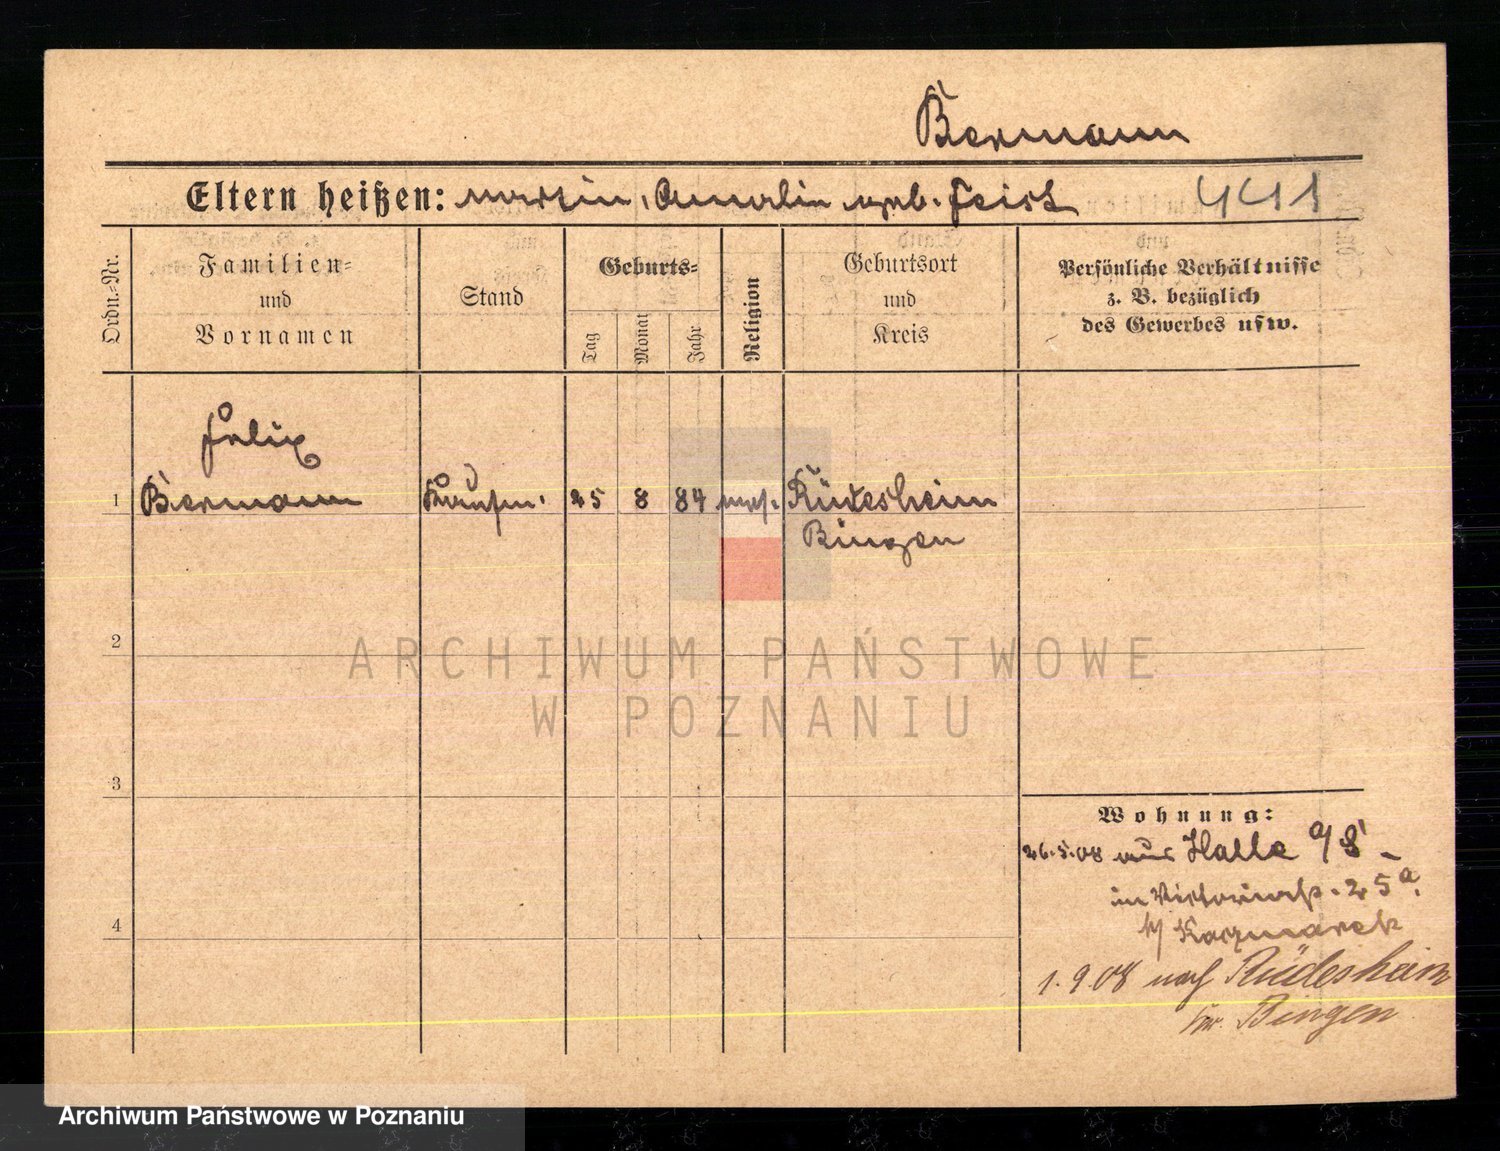 Bermann
Eltern heißen: Martin, Amalie geb. Feist 441
Ordn.-Nr.
Familien=
und
Vornamen
Stand
Geburts=
Tag
Monat
Jahr
Religion
Geburtsort
und
Kreis
Persönliche Verhältnisse
z. B. bezüglich
des Gewerbes usw.
Felix
1 Bermann Kaufm. 25 8 84 mos. Rüdesheim
Bingen
2
3
4
Wohnung:
26.5.08 aus Halle a/S -
in Viktoriastr. 25a.
b/ Kaczmarek
1.9.08 nach Rüdesheim
Bingen
ARCHIWUM PAŃSTWOWE
W POZNANIU
Archiwum Państwowe w Poznaniu